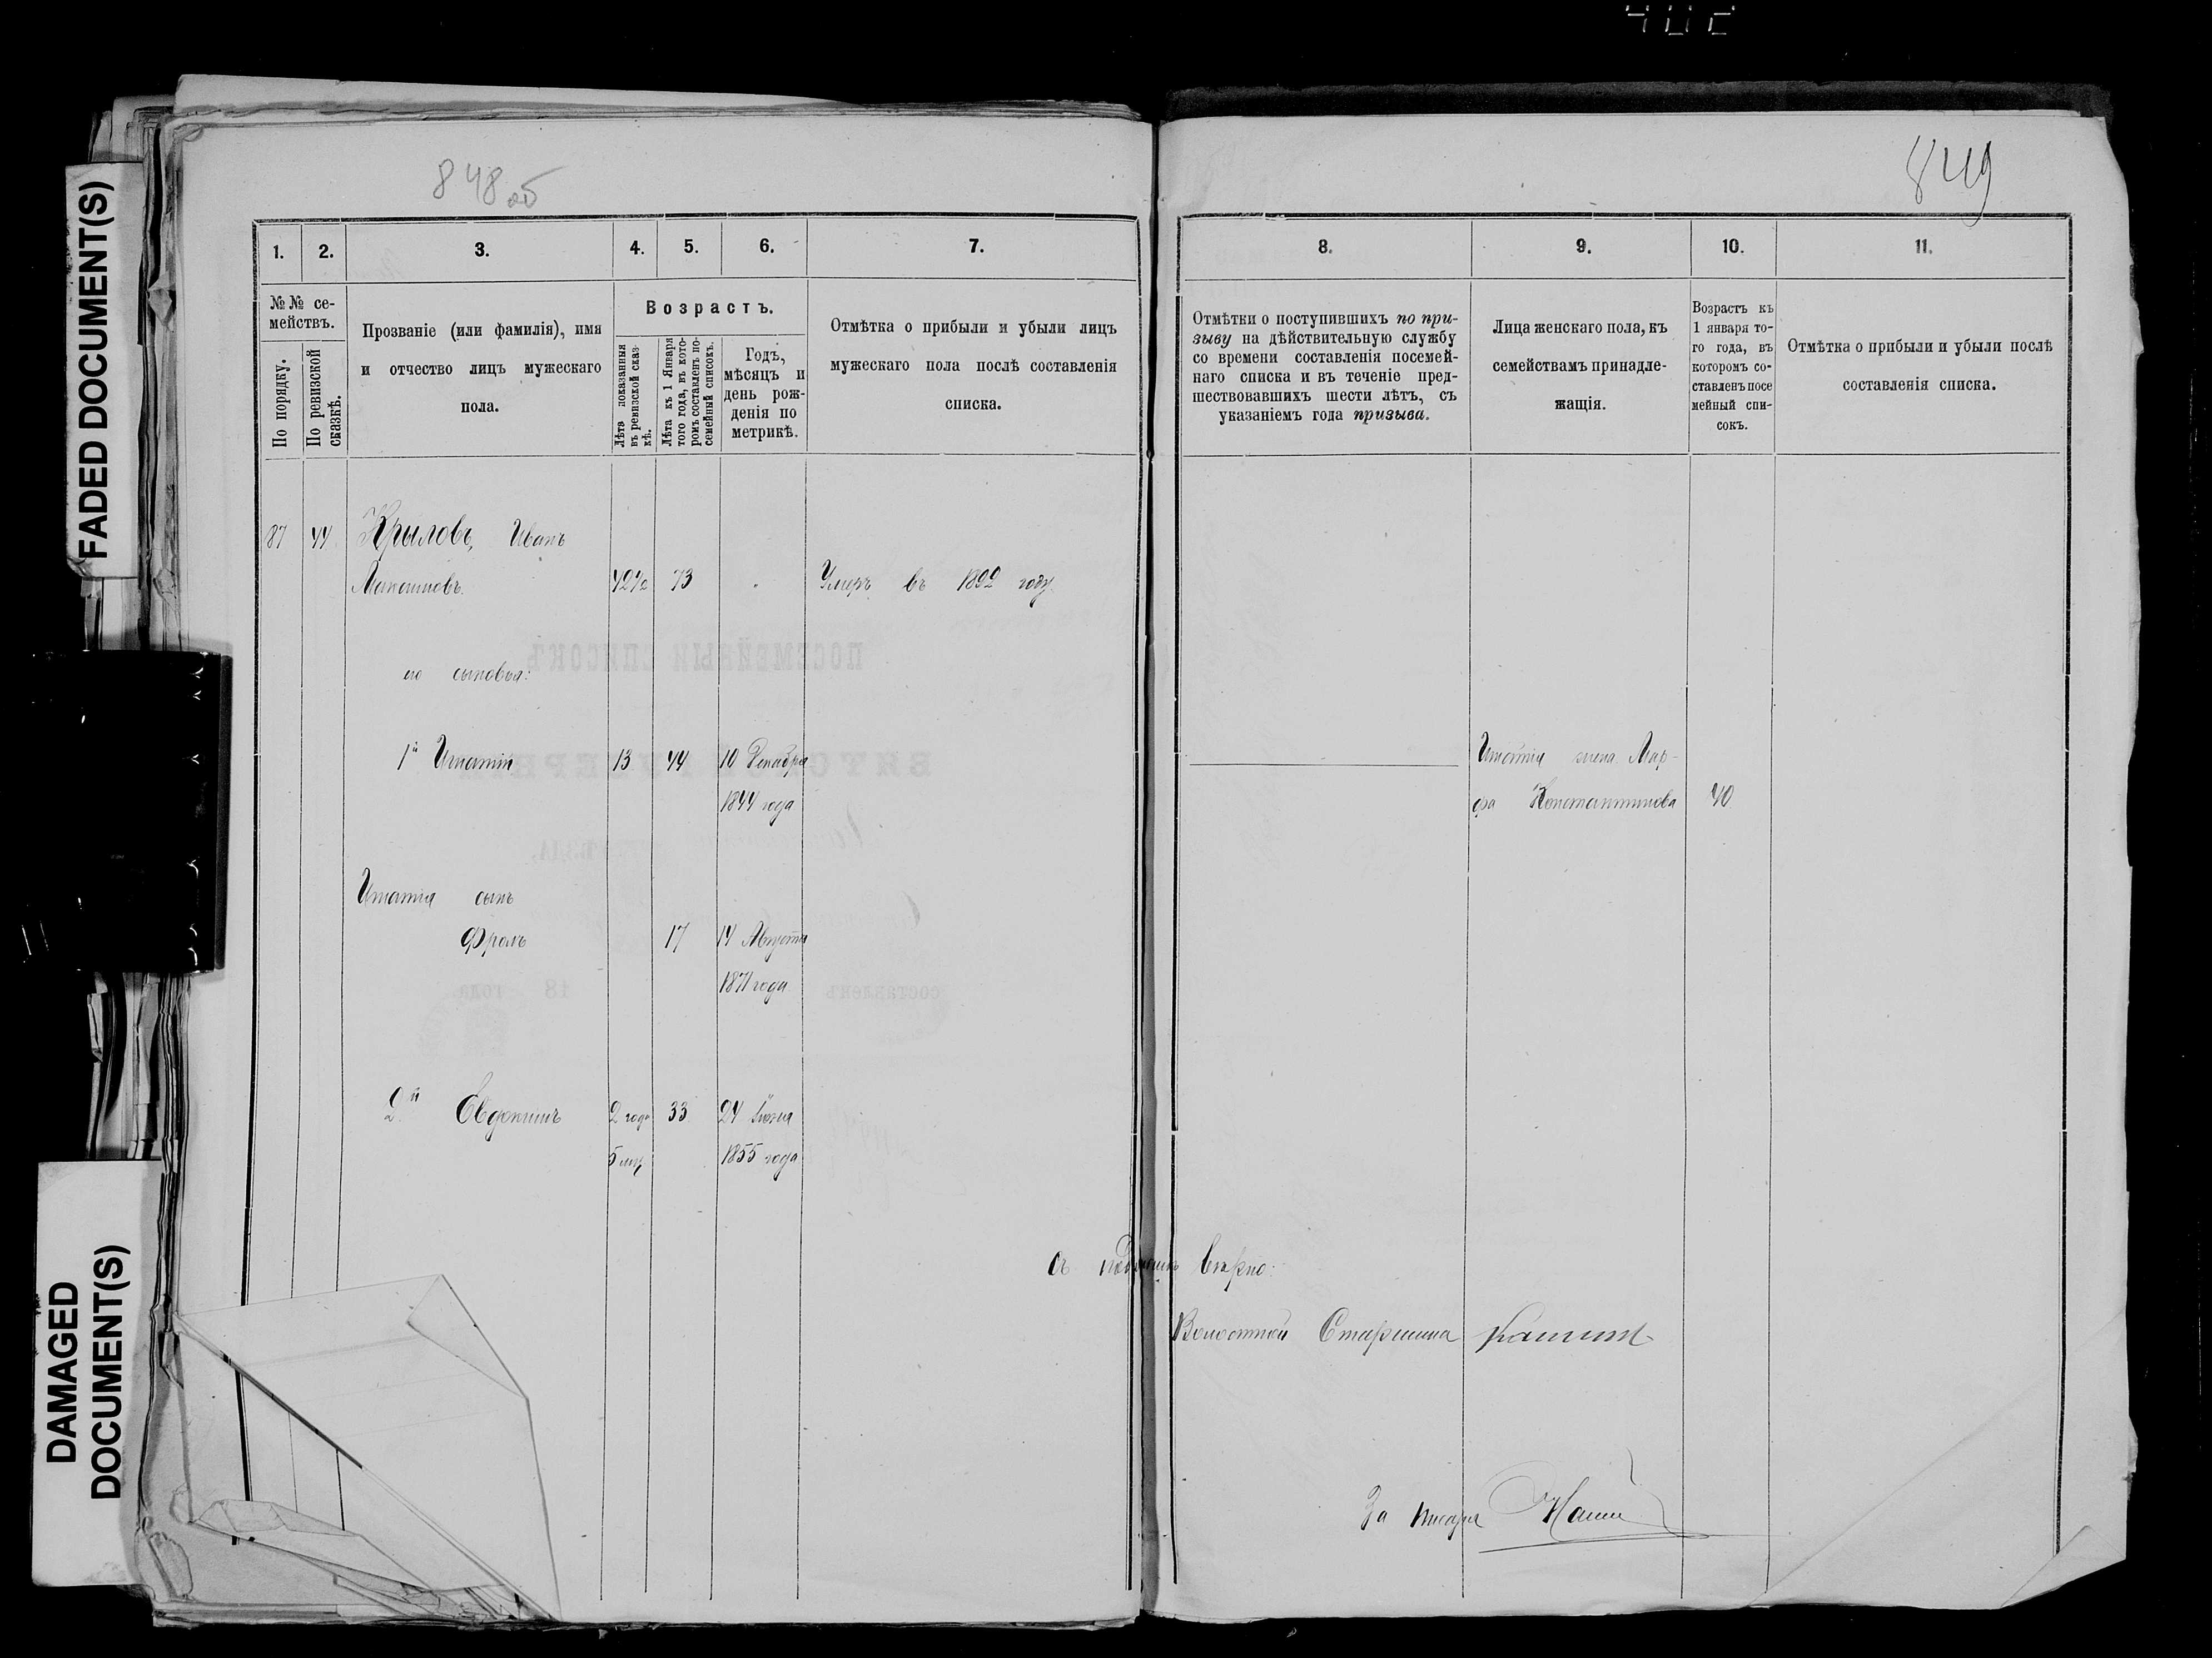 402
848 об
849
FADED DOCUMENT(S)
DAMAGED
DOCUMENT(S)
1. 2. 3. 4. 5. 6. 7.
№№ се-
мействъ.
По порядку.
По ревизской
сказкѣ.
Прозваніе (или фамилія), имя
и отчество лицъ мужескаго
пола.
Возрастъ.
Лѣта показанныя
въ ревизской сказ-
кѣ.
Лѣта къ 1 Января
того года, въ кото-
ромъ составленъ по-
семейный списокъ.
Годъ,
мѣсяцъ и
день рож-
денія по
метрикѣ.
Отмѣтка о прибыли и убыли лицъ
мужескаго пола послѣ составленія
списка.
87 44 Крыловъ, Иванъ
42½ 73 Умеръ въ 1892 году.
его сыновья:
1й Игнатій 13 44 10 Декабря
1844 года
Игнатія сынъ
Фролъ 17 14 Августа
1871 года
2й Евдокимъ 2 года 33 24 Іюля
5 мц 1855 года
8. 9. 10. 11.
Отмѣтки о поступившихъ по при-
зыву на дѣйствительную службу
со времени составленія посемей-
наго списка и въ теченіе пред-
шествовавшихъ шести лѣтъ, съ
указаніемъ года призыва.
Лица женскаго пола, къ
семействамъ принадле-
жащія.
Возрастъ къ
1 января то-
го года, въ
которомъ со-
ставленъ посе
мейный спи-
сокъ.
Отмѣтка о прибыли и убыли послѣ
составленія списка.
Игнатія жена Мар-
фа Константинова 40
Съ подлиннымъ вѣрно:
Волостной Старшина
За писаря